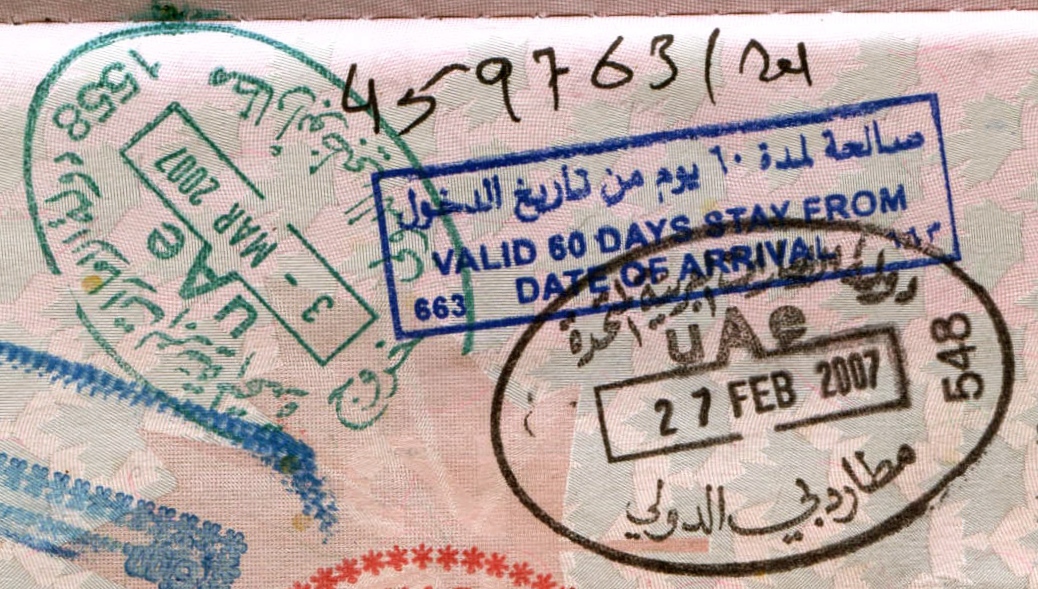 459763/
صالحة لمدة ٦٠ يوم من تاريخ الدخول
VALID 60 DAYS STAY FROM
DATE OF ARRIVAL
663 ٦٦٣
دولة الامارات العربية المتحدة
UAe
27 FEB 2007
548
مطار دبي الدولي
1558
UAe
3 - MAR 2007
خروج